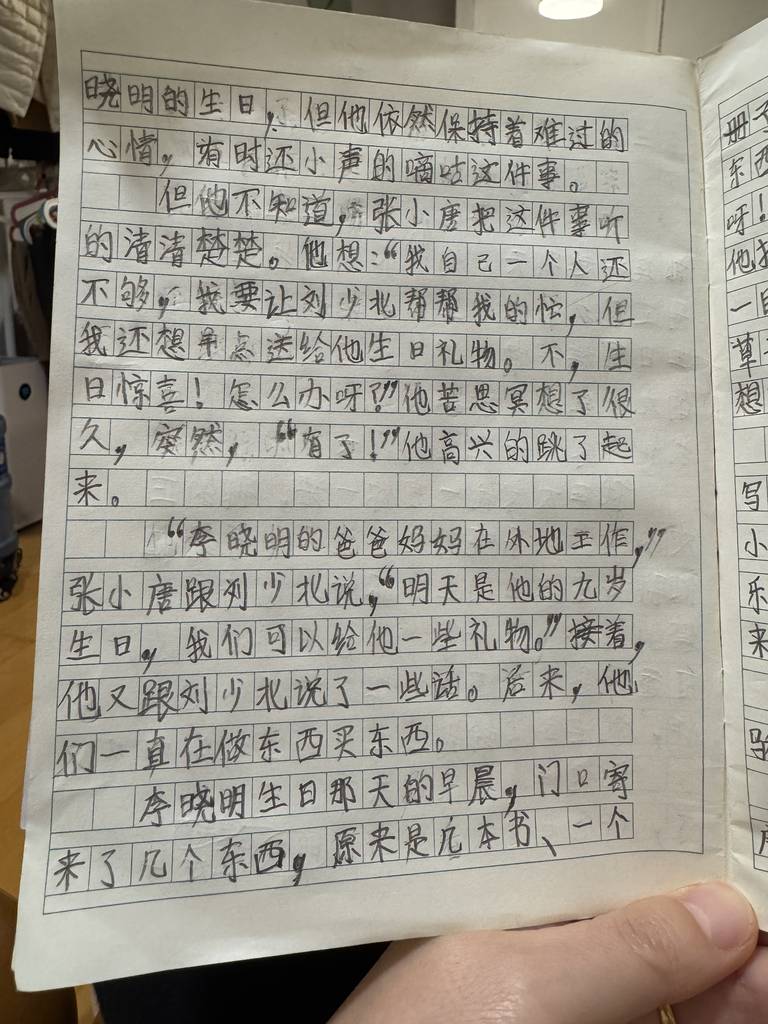 晓明的生日，但他依然保持着难过的
心情，有时还小声的嘀咕这件事。
但他不知道，张小唐把这件事听
的清清楚楚。他想：“我自己一个人还
不够，我要让刘少北帮帮我的忙，但
我还想早点送给他生日礼物。不，生
日惊喜！怎么办呀？”他苦思冥想了很
久，突然，“有了！”他高兴的跳了起
来。
“李晓明的爸爸妈妈在外地工作，”
张小唐跟刘少北说，“明天是他的九岁
生日，我们可以给他一些礼物。”接着，
他又跟刘少北说了一些话。后来，他
们一直在做东西买东西。
李晓明生日那天的早晨，门口寄
来了几个东西，原来是几本书、一个
册子
东西
呀！
他
一
草
想
写
小
乐
来